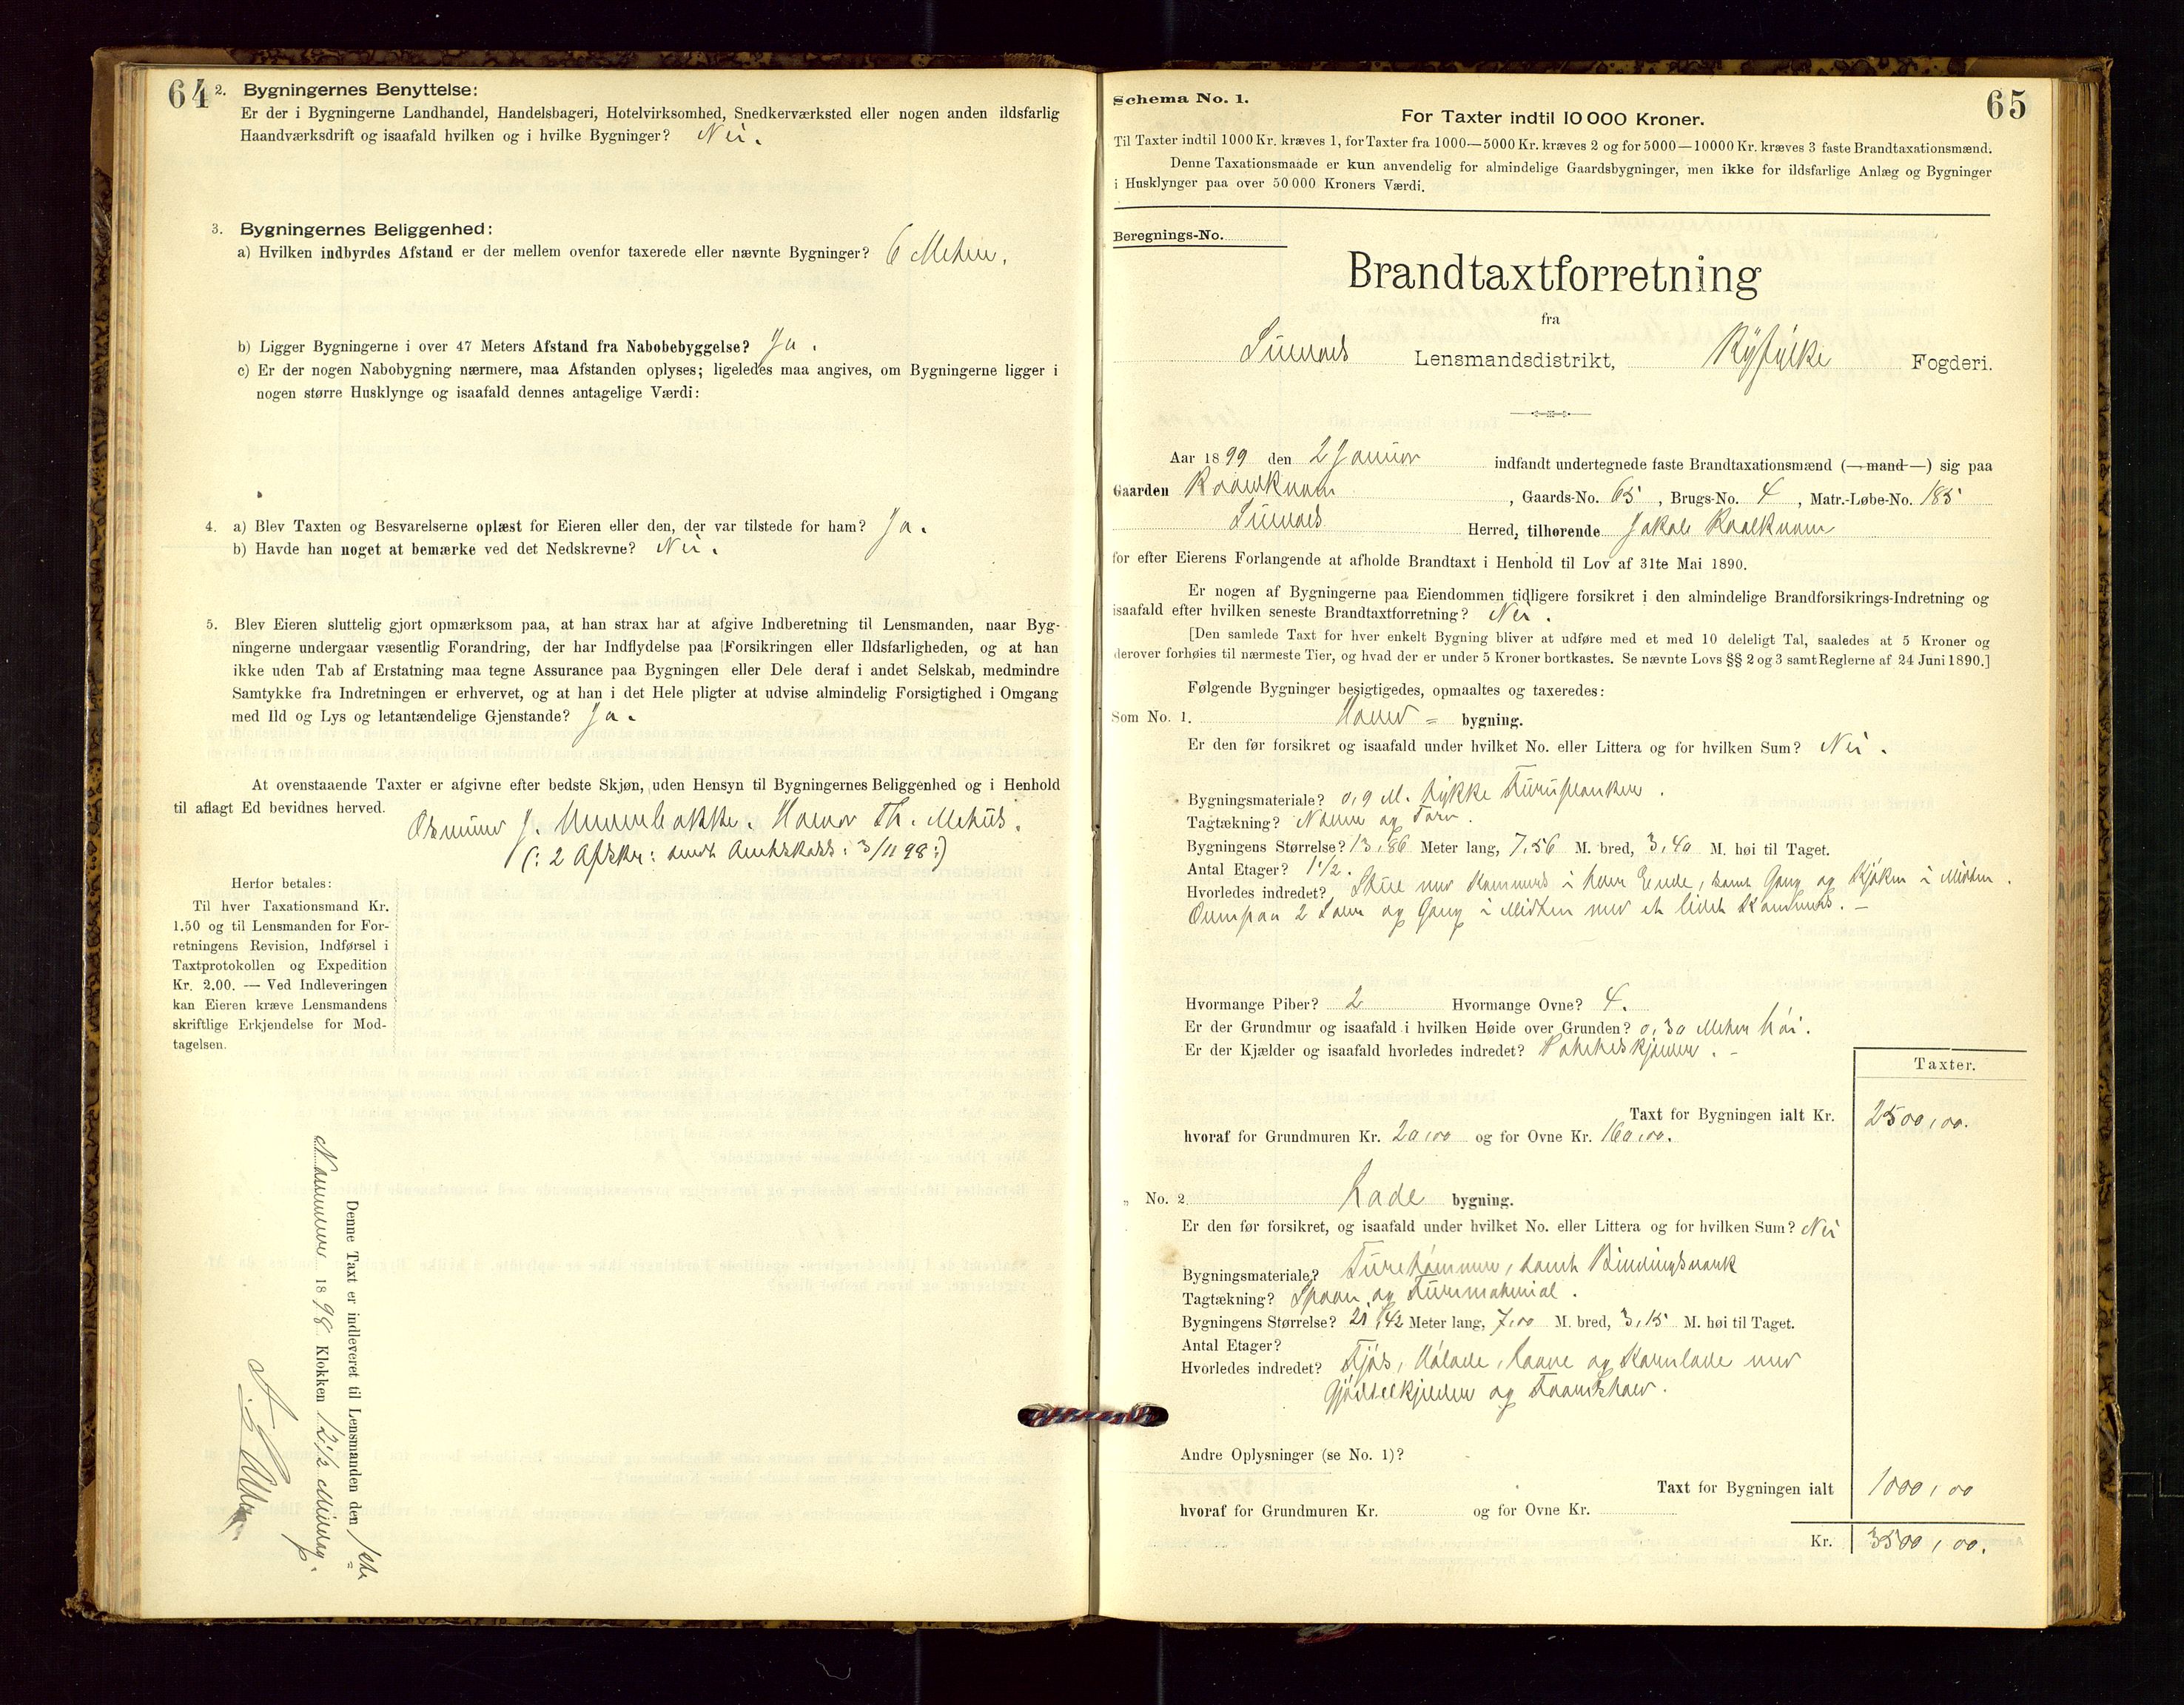 64
2. Bygningernes Benyttelse:
Er der i Bygningerne Landhandel, Handelsbageri, Hotelvirksomhed, Snedkerværksted eller nogen anden ildsfarlig
Haandværksdrift og isaafald hvilken og i hvilke Bygninger? Nei.
3. Bygningernes Beliggenhed:
a) Hvilken indbyrdes Afstand er der mellem ovenfor taxerede eller nævnte Bygninger? 6 Meter.
b) Ligger Bygningerne i over 47 Meters Afstand fra Nabobebyggelse? Ja.
c) Er der nogen Nabobygning nærmere, maa Afstanden oplyses; ligeledes maa angives, om Bygningerne ligger i
nogen større Husklynge og isaafald dennes antagelige Værdi:
4. a) Blev Taxten og Besvarelserne oplæst for Eieren eller den, der var tilstede for ham? Ja.
b) Havde han noget at bemærke ved det Nedskrevne? Nei.
5. Blev Eieren sluttelig gjort opmærksom paa, at han strax har at afgive Indberetning til Lensmanden, naar Byg-
ningerne undergaar væsentlig Forandring, der har Indflydelse paa Forsikringen eller Ildsfarligheden, og at han
ikke uden Tab af Erstatning maa tegne Assurance paa Bygningen eller Dele deraf i andet Selskab, medmindre
Samtykke fra Indretningen er erhvervet, og at han i det Hele pligter at udvise almindelig Forsigtighed i Omgang
med Ild og Lys og letantændelige Gjenstande? Ja.
At ovenstaaende Taxter er afgivne efter bedste Skjøn, uden Hensyn til Bygningernes Beliggenhed og i Henhold
til aflagt Ed bevidnes herved.
Osmund J. Th. Mehus.
(: 2 Afskr: sendt Amtskass: 3/11 98:)
Herfor betales:
Til hver Taxationsmand Kr.
1.50 og til Lensmanden for For-
retningens Revision, Indførsel i
Taxtprotokollen og Expedition
Kr. 2.00. — Ved Indleveringen
kan Eieren kræve Lensmandens
skriftlige Erkjendelse for Mod-
tagelsen.
Denne Taxt er indleveret til Lensmanden den 1ste
November 1898 Klokken 12 1/2 Middag.
65
Schema No. 1.
For Taxter indtil 10 000 Kroner.
Til Taxter indtil 1000 Kr. kræves 1, for Taxter fra 1000—5000 Kr. kræves 2 og for 5000—10000 Kr. kræves 3 faste Brandtaxationsmænd.
Denne Taxationsmaade er kun anvendelig for almindelige Gaardsbygninger, men ikke for ildsfarlige Anlæg og Bygninger
i Husklynger paa over 50 000 Kroners Værdi.
Beregnings-No.
Brandtaxtforretning
fra
Lensmandsdistrikt, Ryfylke Fogderi.
Aar 1899 den 2 Januar indfandt undertegnede faste Brandtaxationsmænd (—mand—) sig paa
Gaarden , Gaards-No. 65, Brugs-No. 4, Matr.-Løbe-No. 185
Herred, tilhørende Jakob
for efter Eierens Forlangende at afholde Brandtaxt i Henhold til Lov af 31te Mai 1890.
Er nogen af Bygningerne paa Eiendommen tidligere forsikret i den almindelige Brandforsikrings-Indretning og
isaafald efter hvilken seneste Brandtaxtforretning? Nei.
[Den samlede Taxt for hver enkelt Bygning bliver at udføre med et med 10 deleligt Tal, saaledes at 5 Kroner og
derover forhøies til nærmeste Tier, og hvad der er under 5 Kroner bortkastes. Se nævnte Lovs §§ 2 og 3 samt Reglerne af 24 Juni 1890.]
Følgende Bygninger besigtigedes, opmaaltes og taxeredes:
Som No. 1. bygning.
Er den før forsikret og isaafald under hvilket No. eller Littera og for hvilken Sum? Nei.
Bygningsmateriale? 0,9 M. tykke Furuplanker.
Tagtækning? Næver og Torv.
Bygningens Størrelse? 13,86 Meter lang, 7,56 M. bred, 3,40 M. høi til Taget.
Antal Etager? 1 1/2.
Hvorledes indredet? Stue med Kammers i hver Ende, samt Gang og Kjøken i Midten.
Ovenpaa 2 Saler og Gang i Midten med et lidet Kammers. —
Hvormange Piber? 2 Hvormange Ovne? 4.
Er der Grundmur og isaafald i hvilken Høide over Grunden? 0,30 Meter høi.
Er der Kjælder og isaafald hvorledes indredet? Potteskjælder. —
Taxter.
Taxt for Bygningen ialt Kr. 2500,00.
hvoraf for Grundmuren Kr. 20,00 og for Ovne Kr. 160,00.
„ No. 2 Lade bygning.
Er den før forsikret, og isaafald under hvilket No. eller Littera og for hvilken Sum? Nei
Bygningsmateriale? Furetømmer, samt Bindingsværk
Tagtækning? Spaan og Furumaterial.
Bygningens Størrelse? 21,42 Meter lang, 7,00 M. bred, 3,15 M. høi til Taget.
Antal Etager?
Hvorledes indredet? Fjøs, Hølade, Laave og Kornlade med
Gjødselkjelder og
Andre Oplysninger (se No. 1)?
Taxt for Bygningen ialt 1000,00
hvoraf for Grundmuren Kr. og for Ovne Kr.
Kr. 3500,00.